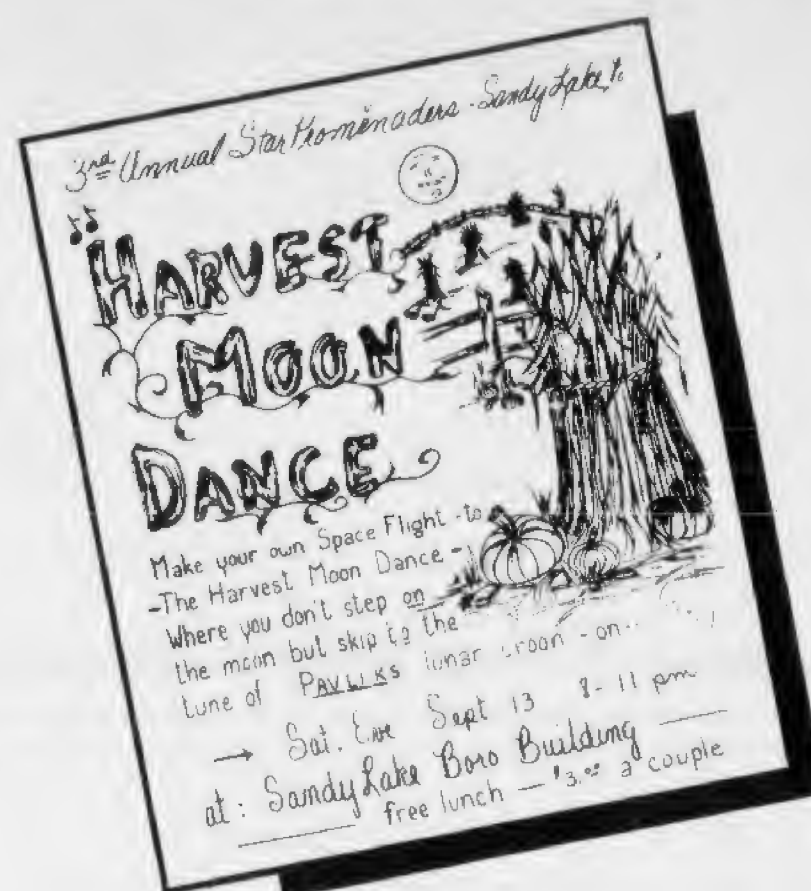 3rd Annual Star Promenaders - Sandy Lake, Pa
HARVEST
MOON
DANCE
Make your own Space Flight - to
- The Harvest Moon Dance -
Where you don't step on
the moon but skip to the
tune of PAVLIKS lunar croon - on -
→ Sat. Eve Sept 13 8-11 pm
at: Sandy Lake Boro Building
free lunch — $3.00 a couple